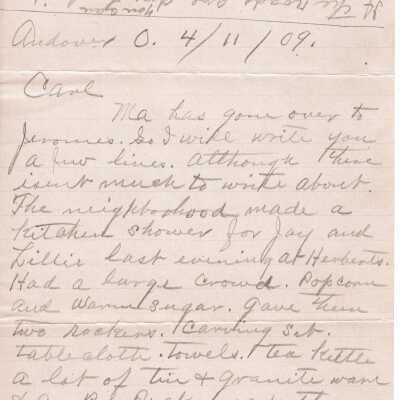 Andover O. 4/11/09.
Carl
Ma has gone over to
Jeromes. So I will write you
a few lines. Although there
isent much to write about.
The neighborhood made a
Kitchen shower for Jay and
Lillie last evening at Herberts.
Had a large crowd. Popcorn
and Warm Sugar. Gave them
two Rockers. Carving Set.
tablecloth. Towels. tea Kettle
a lot of tin & Granite ware